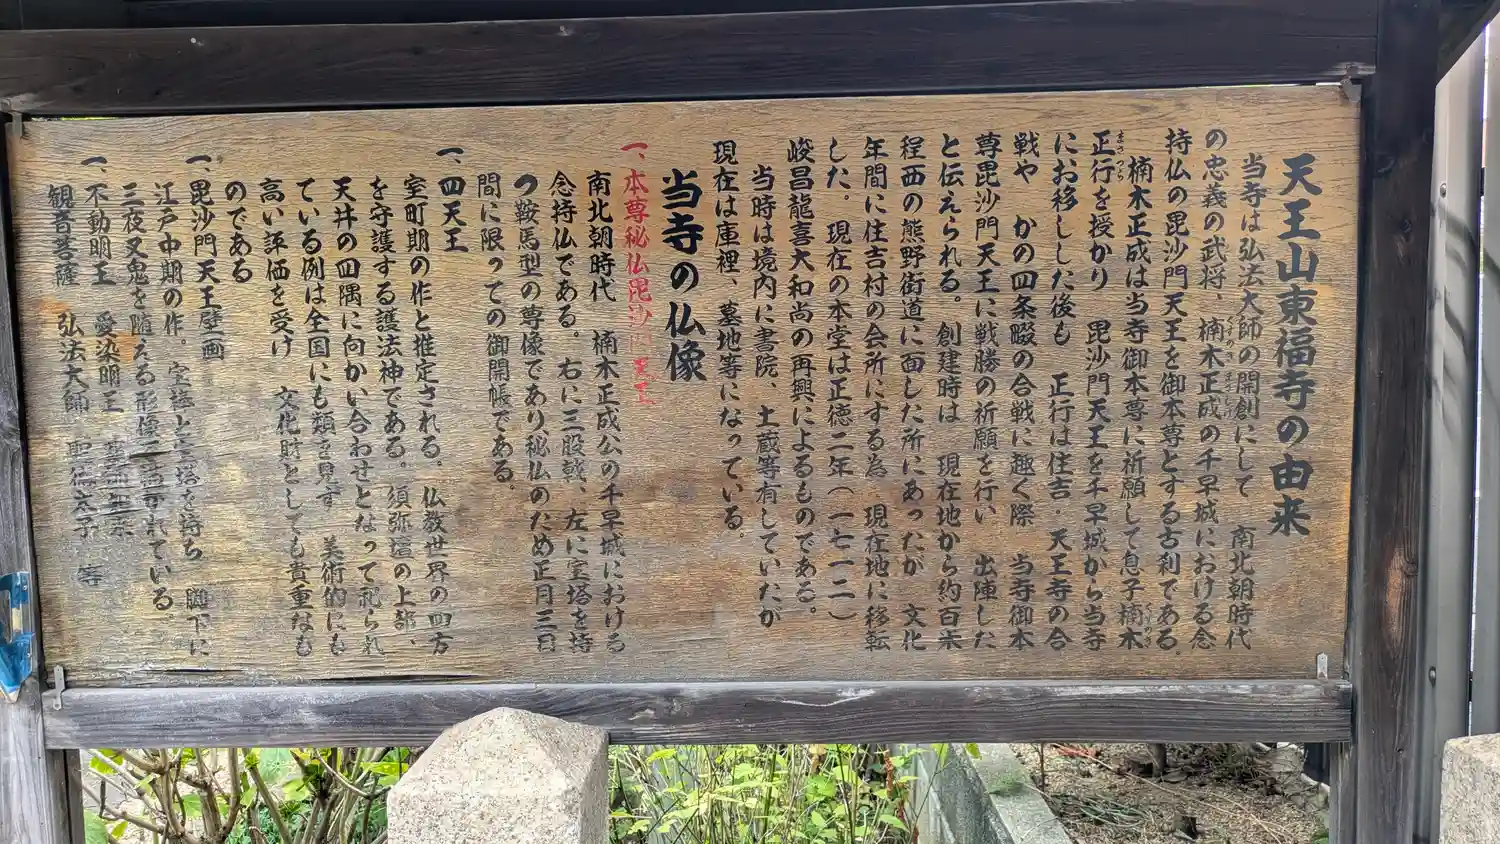 天王山東福寺の由来
当寺は弘法大師の開創にして 南北朝時代
の忠義の武将、楠木正成の千早城における念
持仏の毘沙門天王を御本尊とする古刹である。
楠木正成は当寺御本尊に祈願して息子楠木
正行を授かり 毘沙門天王を千早城から当寺
にお移しした後も 正行は住吉・天王寺の合
戦や かの四条畷の合戦に趣く際 当寺御本
尊毘沙門天王に戦勝の祈願を行い 出陣した
と伝えられる。創建時は 現在地から約百米
程西の熊野街道に面した所にあったが 文化
年間に住吉村の会所にする為 現在地に移転
した。現在の本堂は正徳二年(一七一二)
峻昌龍喜大和尚の再興によるものである。
当時は境内に書院、土蔵等有していたが
現在は庫裡、墓地等になっている。
当寺の仏像
一、本尊秘仏毘沙門天王
南北朝時代 楠木正成公の千早城における
念持仏である。右に三股戟、左に宝塔を持
つ鞍馬型の尊像であり、秘仏のため正月三日
間に限っての御開帳である。
一、四天王
室町期の作と推定される。仏教世界の四方
を守護する護法神である。須弥壇の上部、
天井の四隅に向かい合わせとなって祀られ
ている例は全国にも類を見ず 美術的にも
高い評価を受け 文化財としても貴重なも
のである
一、毘沙門天王壁画
江戸中期の作。宝塩と三塔を持ち 脚下に
三夜叉鬼を随える形像 れている
一、不動明王 愛染明王
観音菩薩 弘法大師 聖徳太子 等